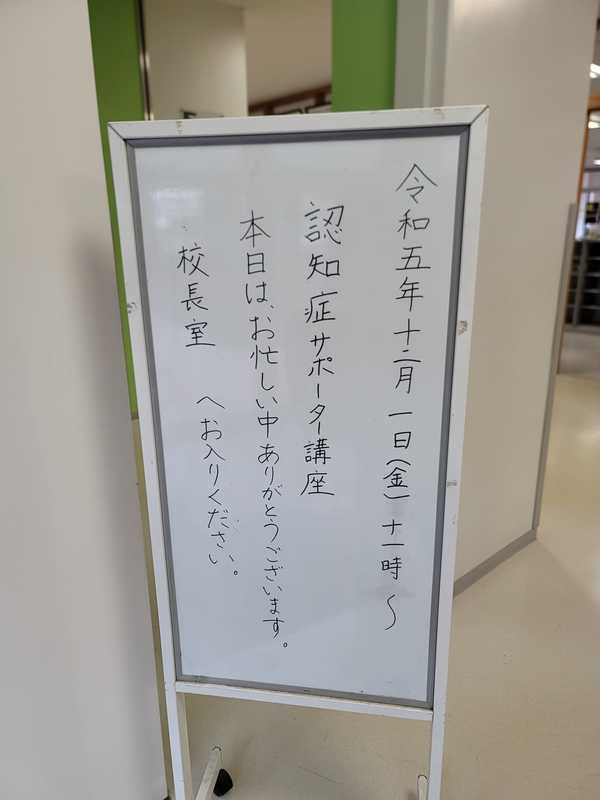 令和五年十二月一日(金)十一時〜
認知症サポーター講座
本日は、お忙しい中ありがとうございます。
校長室 へお入りください。